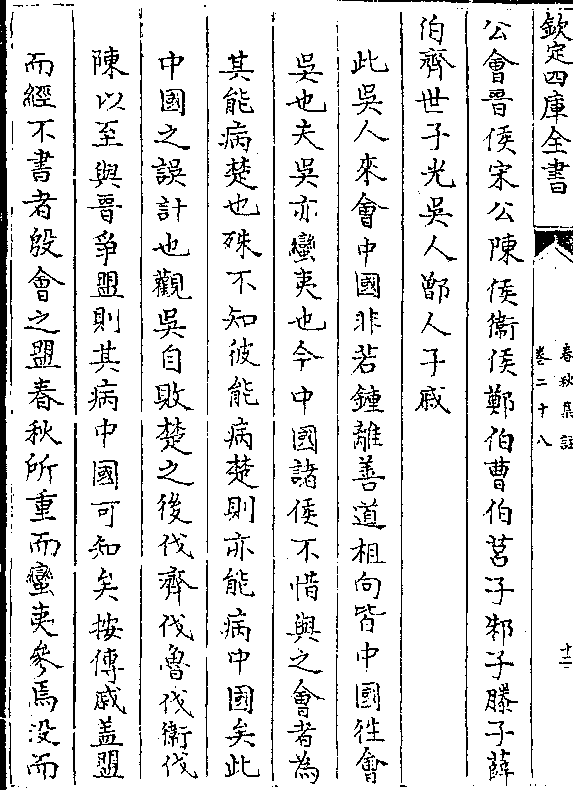 欽定四庫全書
春秋集註
卷二十八
十二
公會晉侯宋公陳侯衛侯鄭伯曹伯莒子邾子滕子薛
伯齊世子光吳人鄫人于戚
此吳人來會中國非若鍾離善道相向皆中國徃會
吳也夫吳亦蠻夷也今中國諸侯不惜與之會者為
其能病楚也殊不知彼能病楚則亦能病中國矣此
中國之誤計也觀吳自敗楚之後伐齊伐魯伐衛伐
陳以至與晉爭盟則其病中國可知矣按傳戚盖盟
而經不書者殷會之盟春秋所重而蠻夷參焉没而